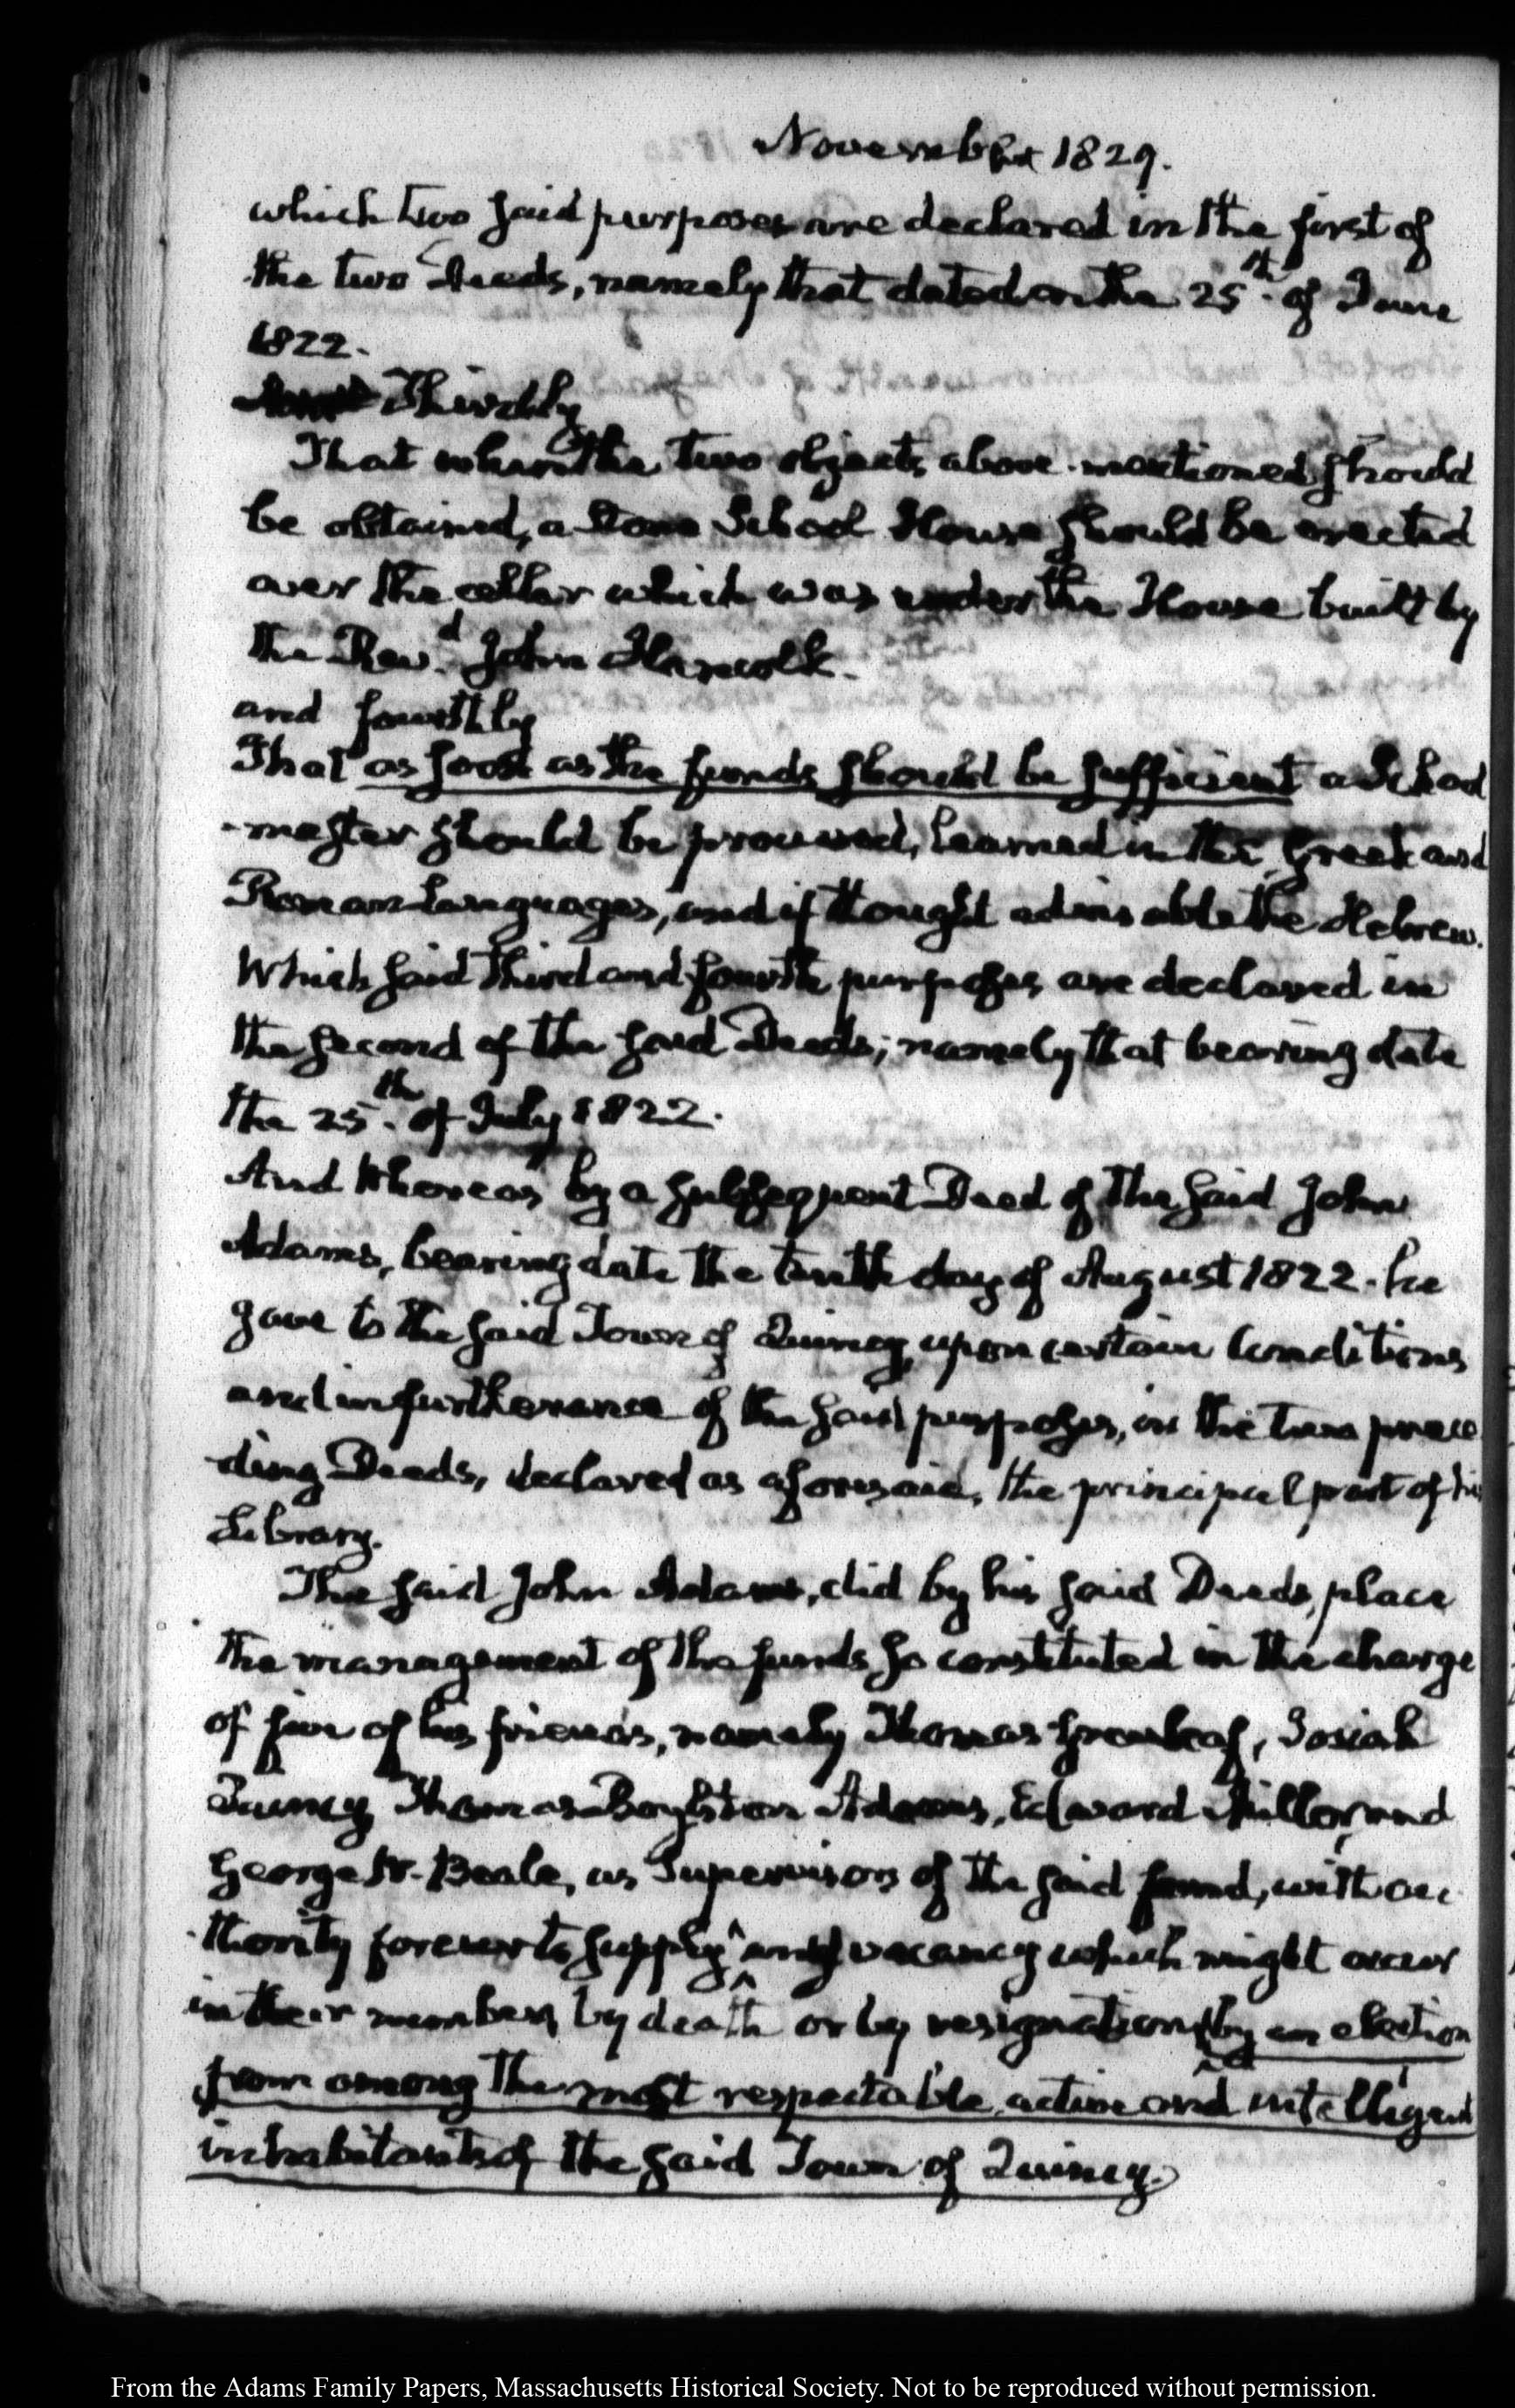 November 1829.
which two said purposes are declared in the first of
the two Deeds, namely that dated on the 25th. of June
1822.
Thirdly
That when the two objects above-mentioned should
be obtained, a Stone School House should be erected
over the cellar which was under the House built by
the Revd. John Hancock.
and fourthly
That as soon as the funds should be sufficient a School
-master should be procured, learned in the Greek and
Roman Languages, and if thought adviseable the Hebrew.
Which said third and fourth purposes are declared in
the second of the said Deeds; namely that bearing date
the 25th. of July 1822.
And Whereas by a subsequent Deed of the said John
Adams, bearing date the tenth day of August 1822. he
gave to the said Town of Quincy, upon certain Conditions
and in furtherance of the said purposes, in the two prece
-ding Deeds, declared as aforesaid, the principal part of his
Library.
The said John Adams, did by his said Deeds, place
the management of the funds so constituted in the charge
of five of his friends, namely Thomas Greenleaf, Josiah
Quincy Thomas Boylston Adams, Edward Miller, and
George W. Beale, as Supervisors of the said fund, with au
-thority forever to supply any vacancy which might occur
in their members by death or by resignation (by an election
from among the most respectable, active and intelligent
inhabitants of the said Town of Quincy.)
From the Adams Family Papers, Massachusetts Historical Society. Not to be reproduced without permission.